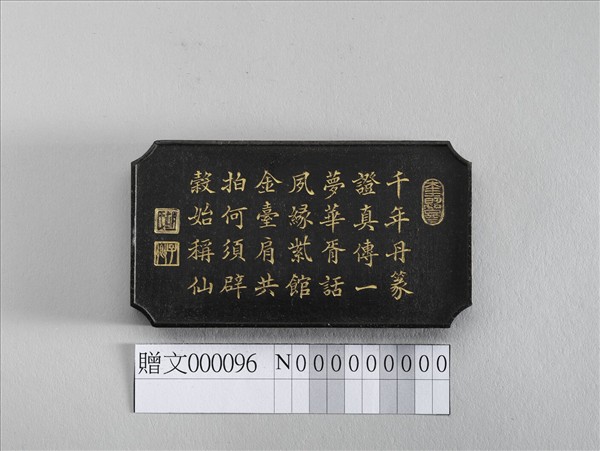 千年丹篆
證真傳一
夢華胥話
夙緣紫館
金臺肩共
拍何須辟
穀始稱仙
贈文000096
N0000000000